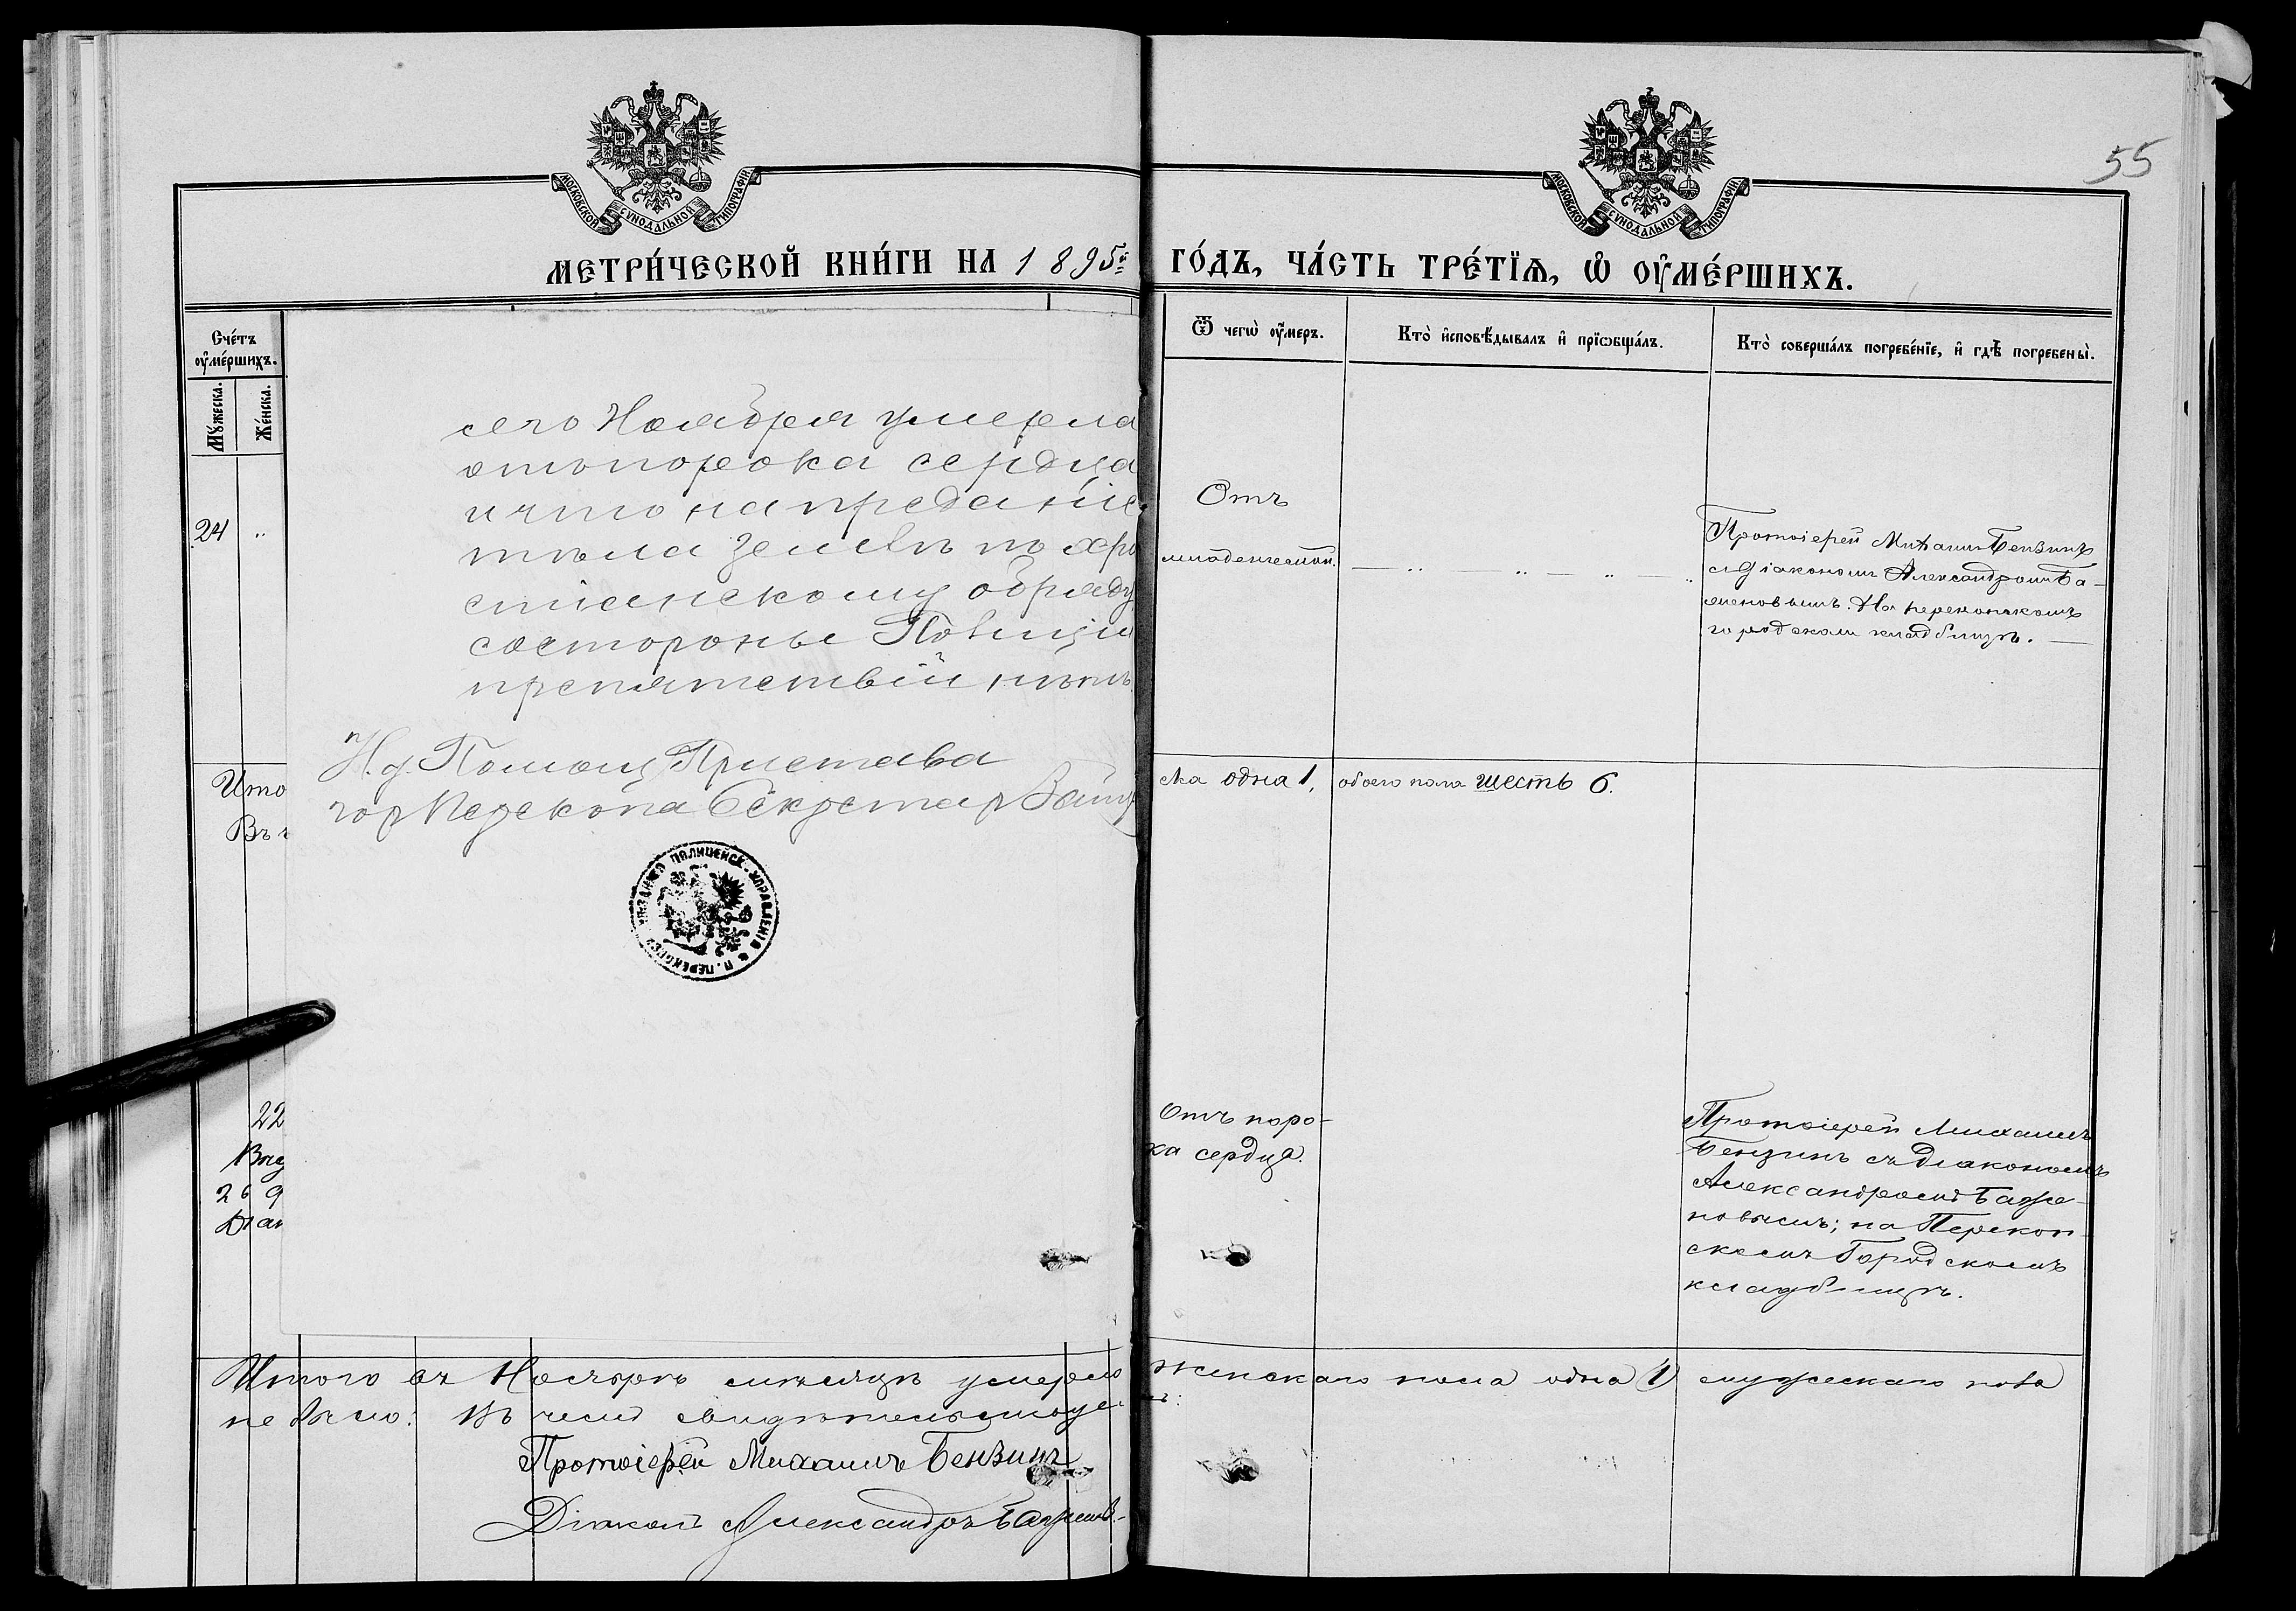 МОСКОВСКОЙ СѴНОДАЛЬНОЙ ТИПОГРАФІИ.
МОСКОВСКОЙ СѴНОДАЛЬНОЙ ТИПОГРАФІИ.
55
МЕТРИ́ЧЕСКОЙ КНИ́ГИ НА 1895й ГО́ДЪ, ЧА́СТЬ ТРЕ́ТЇѦ, Ѡ҆ ОУ҆МЕ́РШИХЪ.
Сче́тъ
оу҆ме́ршихъ.
Му́жеска.
Же́нска.
Ѿ чегѡ̀ оу҆́меръ.
Кто̀ и҆сповѣ́дывалъ и҆ прїѡбща́лъ.
Кто̀ соверша́лъ погребе́нїе, и҆ гдѣ̀ погребены̀.
сего Ноября умерла
отъ порока сердца
и что на преданіе
тѣла землѣ по хри
стіанскому обряду
со стороны Полиціи
препятствій нѣтъ.
И.д. Помощ Пристава
гор Перекопа Секретар
П. ПЕРЕКОПСК. УѢЗДНАГО ПОЛИЦЕЙСК. УПРАВЛЕНІЯ
24 "
Отъ
младенческой.
— " — " — " — "
Протоіерей Михаилъ Бензинъ
съ діакономъ Александромъ Ба-
женовымъ. На перекопскомъ
городскомъ кладбищѣ. —
Ито
Въ ч
ска одна 1, обоего пола шесть 6.
22
26 9
Діак
Отъ поро-
ка сердца.
Протоіерей Михаилъ
Бензинъ съ діакономъ
Александромъ Баже-
новымъ; на Перекоп-
скомъ Городскомъ
кладбищѣ.
Итого въ Ноябрѣ мѣсяцѣ умерло женскаго пола одна (1) мужескаго пола
не было: Въ чемъ свидѣтельствуе
Протоіерей Михаилъ Бензинъ
Діаконъ Александръ Баженов.